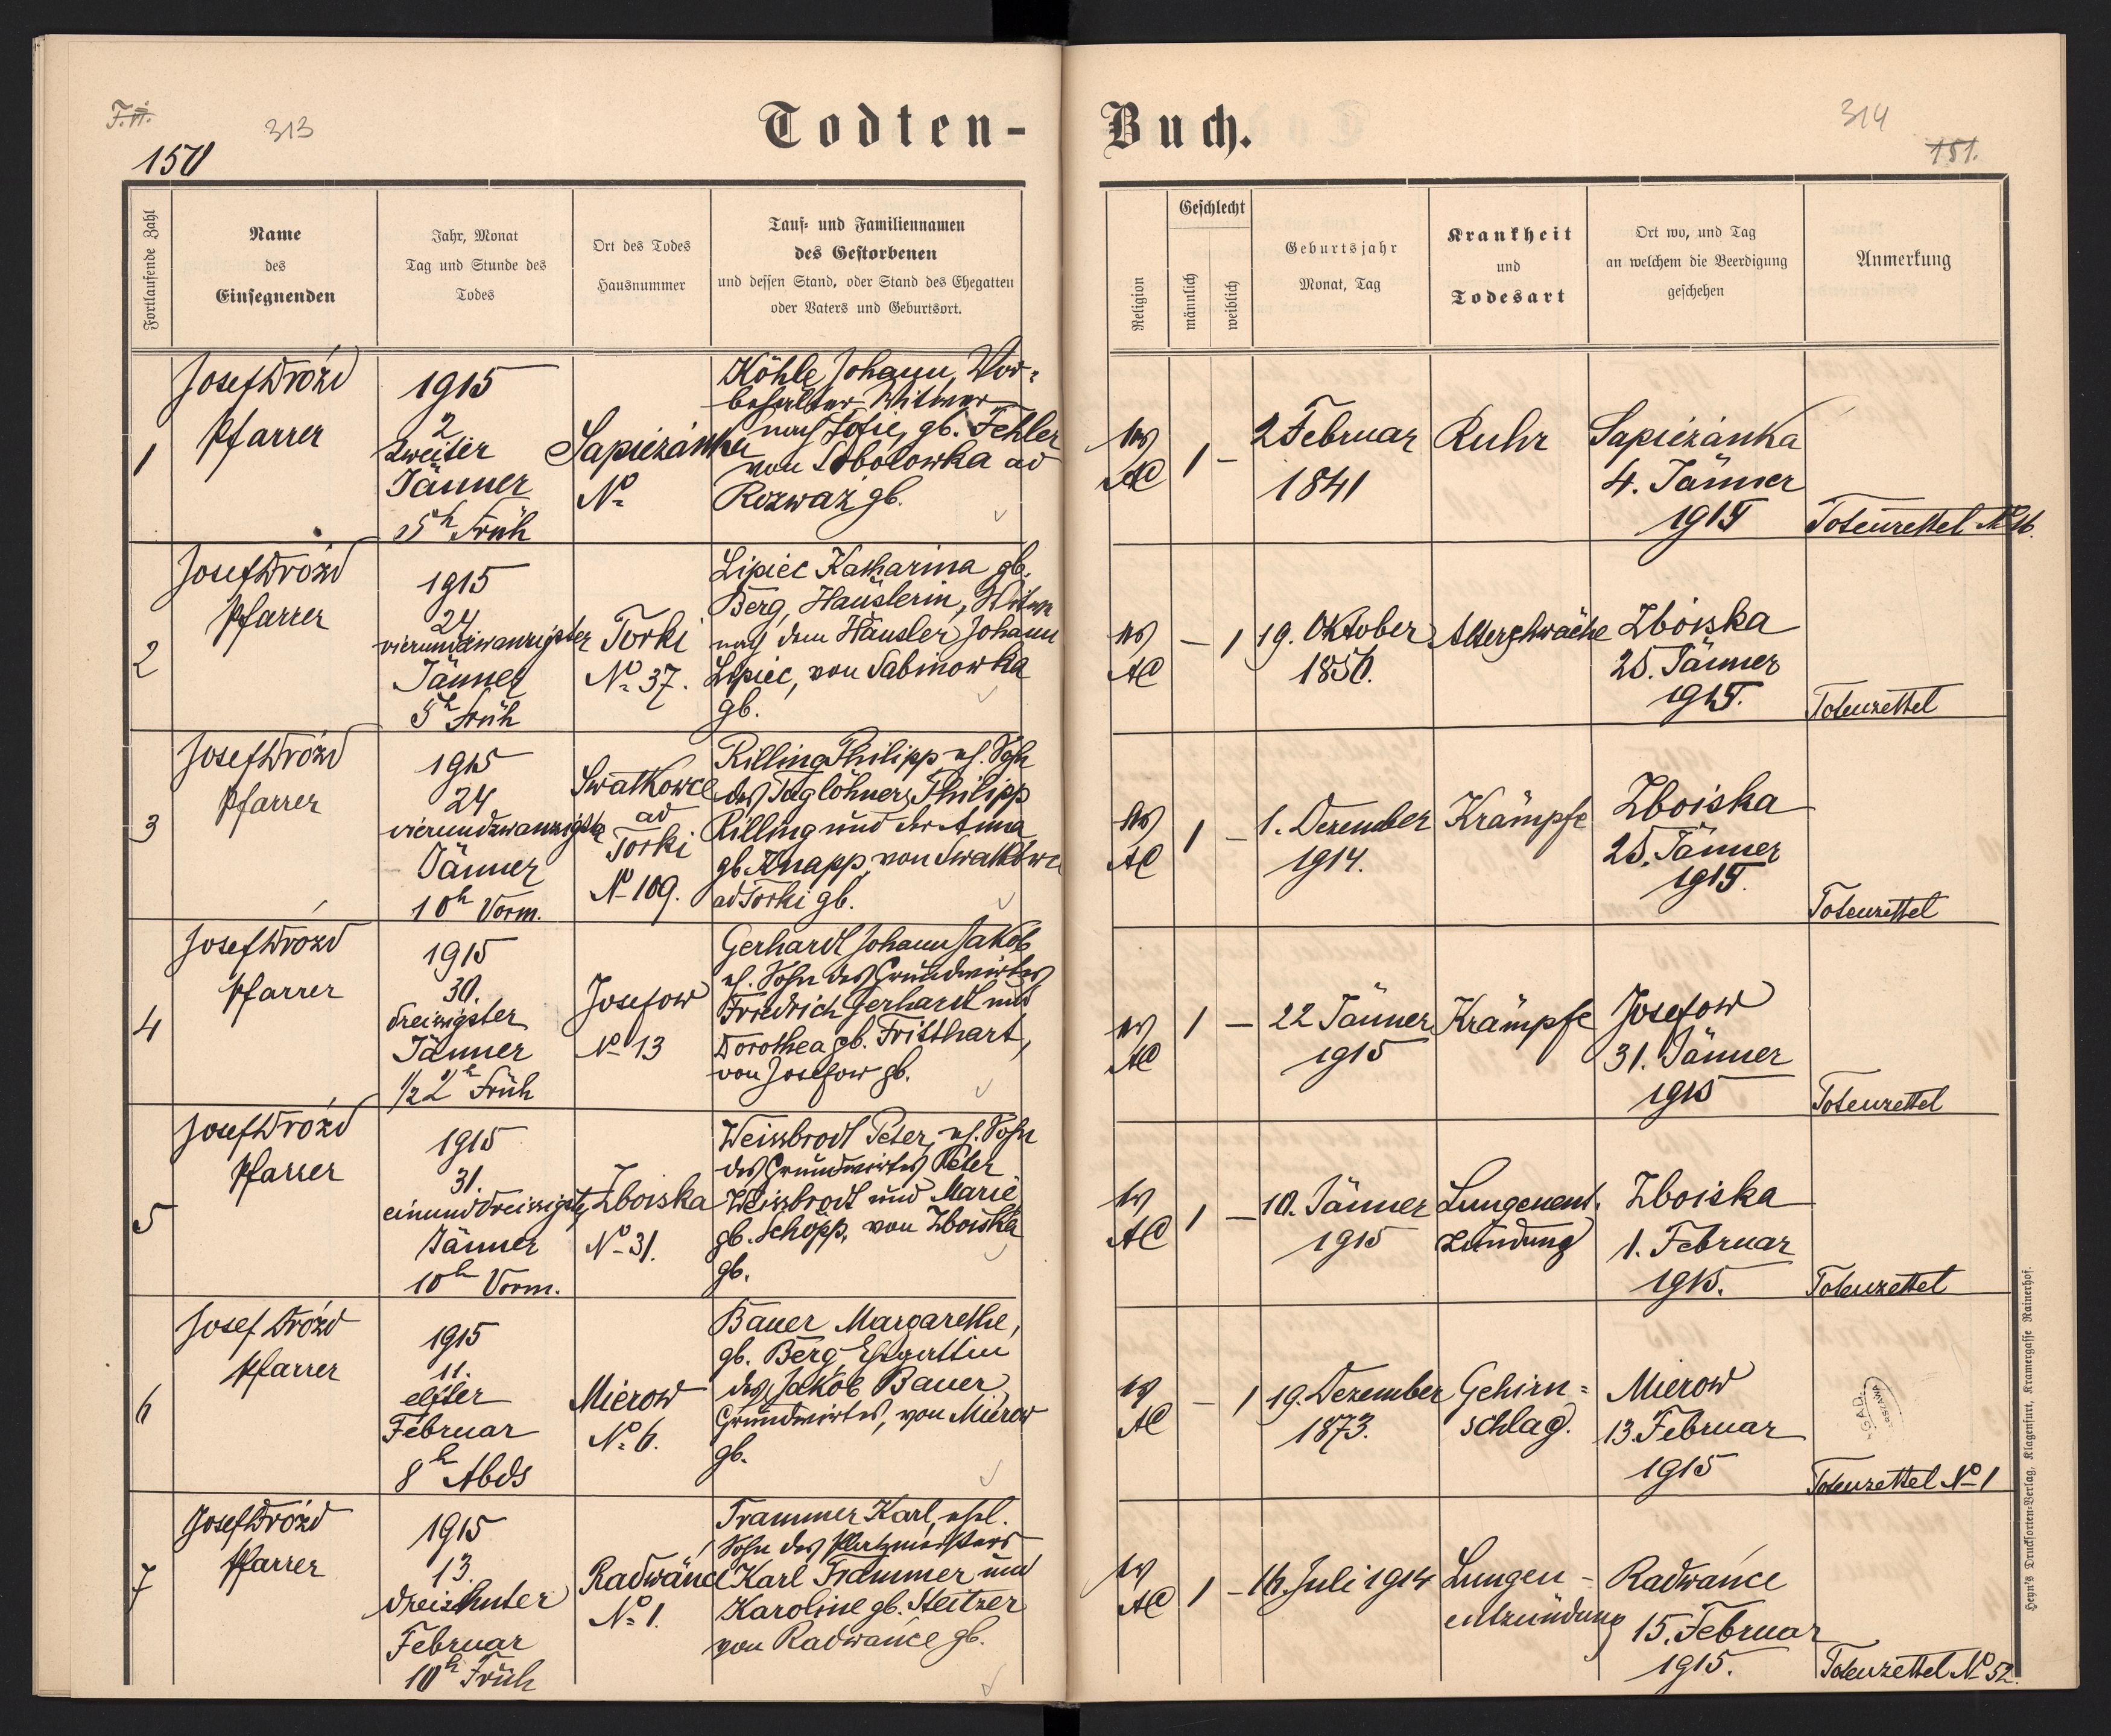 313
150
Todten-
Fortlaufende Zahl
Name
des
Einsegnenden
Jahr, Monat
Tag und Stunde des
Todes
Ort des Todes
Hausnummer
Tauf- und Familiennamen
des Gestorbenen
und dessen Stand, oder Stand des Ehegatten
oder Vaters und Geburtsort.
1
Josef Drózd
Pfarrer
1915
2
zweiter
Jänner
5h Früh
Sapiezánka
No
Köhle Johann, Vor-
behalter, Witwer
nach Sofie, gb. Fehler
von Sobolowka ad
Rozwaz gb.
2
Josef Drózd
Pfarrer
1915
24
vierundzwanzigster
Jänner
5h Früh
Torki
No 37.
Lipiec Katharina gb.
Berg, Häuslerin, Witwe
nach dem Häusler Johann
Lipiec, von Sabinowka
gb.
3
Josef Drózd
Pfarrer
1915
24
vierundzwanzigster
Jänner
10h Vorm.
Swatkowce
ad
Torki
No 109.
Rilling Philipp, eh. Sohn
des Taglöhners Philipp
Rilling und der Anna
gb. Knapp, von Swatkowce
ad Torki gb.
4
Josef Drózd
Pfarrer
1915
30.
dreissigster
Jänner
1/2 2h Früh
Josefow
No 13
Gerhardt Johann Jakob
eh. Sohn des Grundwirtes
Friedrich Gerhardt und
Dorothea gb. Fritthart,
von Josefow gb.
5
Josef Drózd
Pfarrer
1915
31.
einunddreissigster
Jänner
10h Vorm.
Zboiska
No 31.
Weissbrodt Peter, eh. Sohn
des Grundwirtes Peter
Weissbrodt und Marie
gb. Schöpp, von Zboiska
gb.
6
Josef Drózd
Pfarrer
1915
11.
elfter
Februar
8h Abds
Mierow
No 6.
Bauer Margarethe,
gb. Berg Ehegattin
des Jakob Bauer
Grundwirtes, von Mierow
gb.
7
Josef Drózd
Pfarrer
1915
13.
dreizehnter
Februar
10h Früh
Radwánce
No 1.
Trammer Karl, ehel.
Sohn des Platzmeisters
Karl Trammer und
Karoline gb. Steitzer
von Radwánce gb.
Buch.
314
151.
Religion
Geschlecht
männlich
weiblich
Geburtsjahr
Monat, Tag
Krankheit
und
Todesart
Ort wo, und Tag
an welchem die Beerdigung
geschehen
Anmerkung
AC
1 -
2 Februar
1841
Ruhr
Sapiezánka
4. Jänner
1915
Totenzettel
AC
- 1
19. Oktober
Alterschwäche
Zboiska
25. Jänner
1915.
Totenzettel
AC
1 -
1. Dezember
1914.
Krämpfe
Zboiska
25. Jänner
1915.
Totenzettel
AC
1 -
22 Jänner
1915
Krämpfe
Josefow
31. Jänner
1915
Totenzettel
AC
1 -
10. Jänner
1915
Lungenent.
zündung
Zboiska
1. Februar
1915.
Totenzettel
AC
- 1
19. Dezember
1873.
Gehirn=
schlag.
Mierow
13. Februar
1915
Totenzettel No 1
AC
1 -
16. Juli 1914
Lungen-
entzündung
Radwánce
15. Februar
1915.
Totenzettel No 52.
Heyn's Drucksorten-Verlag, Klagenfurt, Kramergasse Rainerhof.